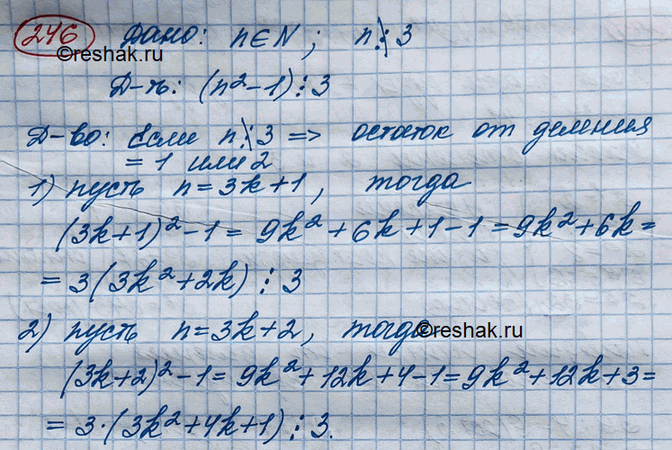 246 Дано: n∈N; n⋮̸3
©reshak.ru
Д-ть: (n²-1)⋮3
Д-во: Если n⋮̸3 => остаток от деления
= 1 или 2
1) пусть n=3k+1, тогда
(3k+1)²-1= 9k²+6k+1-1=9k²+6k=
=3(3k²+2k)⋮3
2) пусть n=3k+2, тогда
©reshak.ru
(3k+2)²-1=9k²+12k+4-1=9k²+12k+3=
=3·(3k²+4k+1)⋮3.